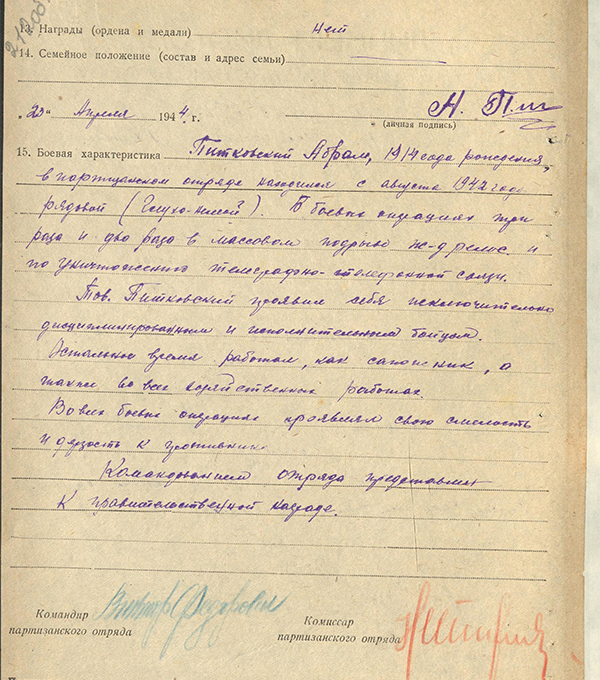 13. Награды (ордена и медали) нет
14. Семейное положение (состав и адрес семьи)
"23" Апреля 1944 г.
(личная подпись)
15. Боевая характеристика Питковский Абрам, 1914 года рождения,
в партизанском отряде находился с августа 1942 года
рядовой (Глухо-немой). В боевых операциях три
раза и два раза в массовом подрыве ж-д рельс и
по уничтожению телеграфно-телефонной связи.
Тов. Питковский проявил себя исключительно
дисциплинированным и исполнительным бойцом.
Остальное время работал, как сапожник, а
также во всех хозяйственных работах.
Во всех боевых операциях проявлял свою смелость
и дерзость к противнику.
Командованием отряда представлен
К правительственной награде.
Командир
партизанского отряда
Комиссар
партизанского отряда